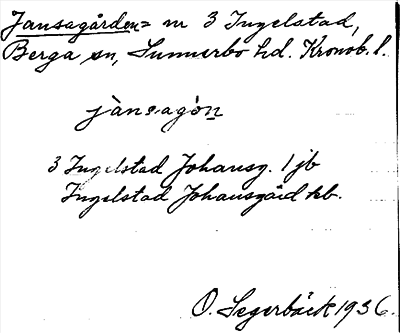 Jansagården = nr 3 Ingelstad,
Berga sn, Sunnerbo hd. Kronob. l.
jànsagòn
3 Ingelstad Johansg. 1 jb
Ingelstad Johansgård kb.
O. Segerbäck 1936.